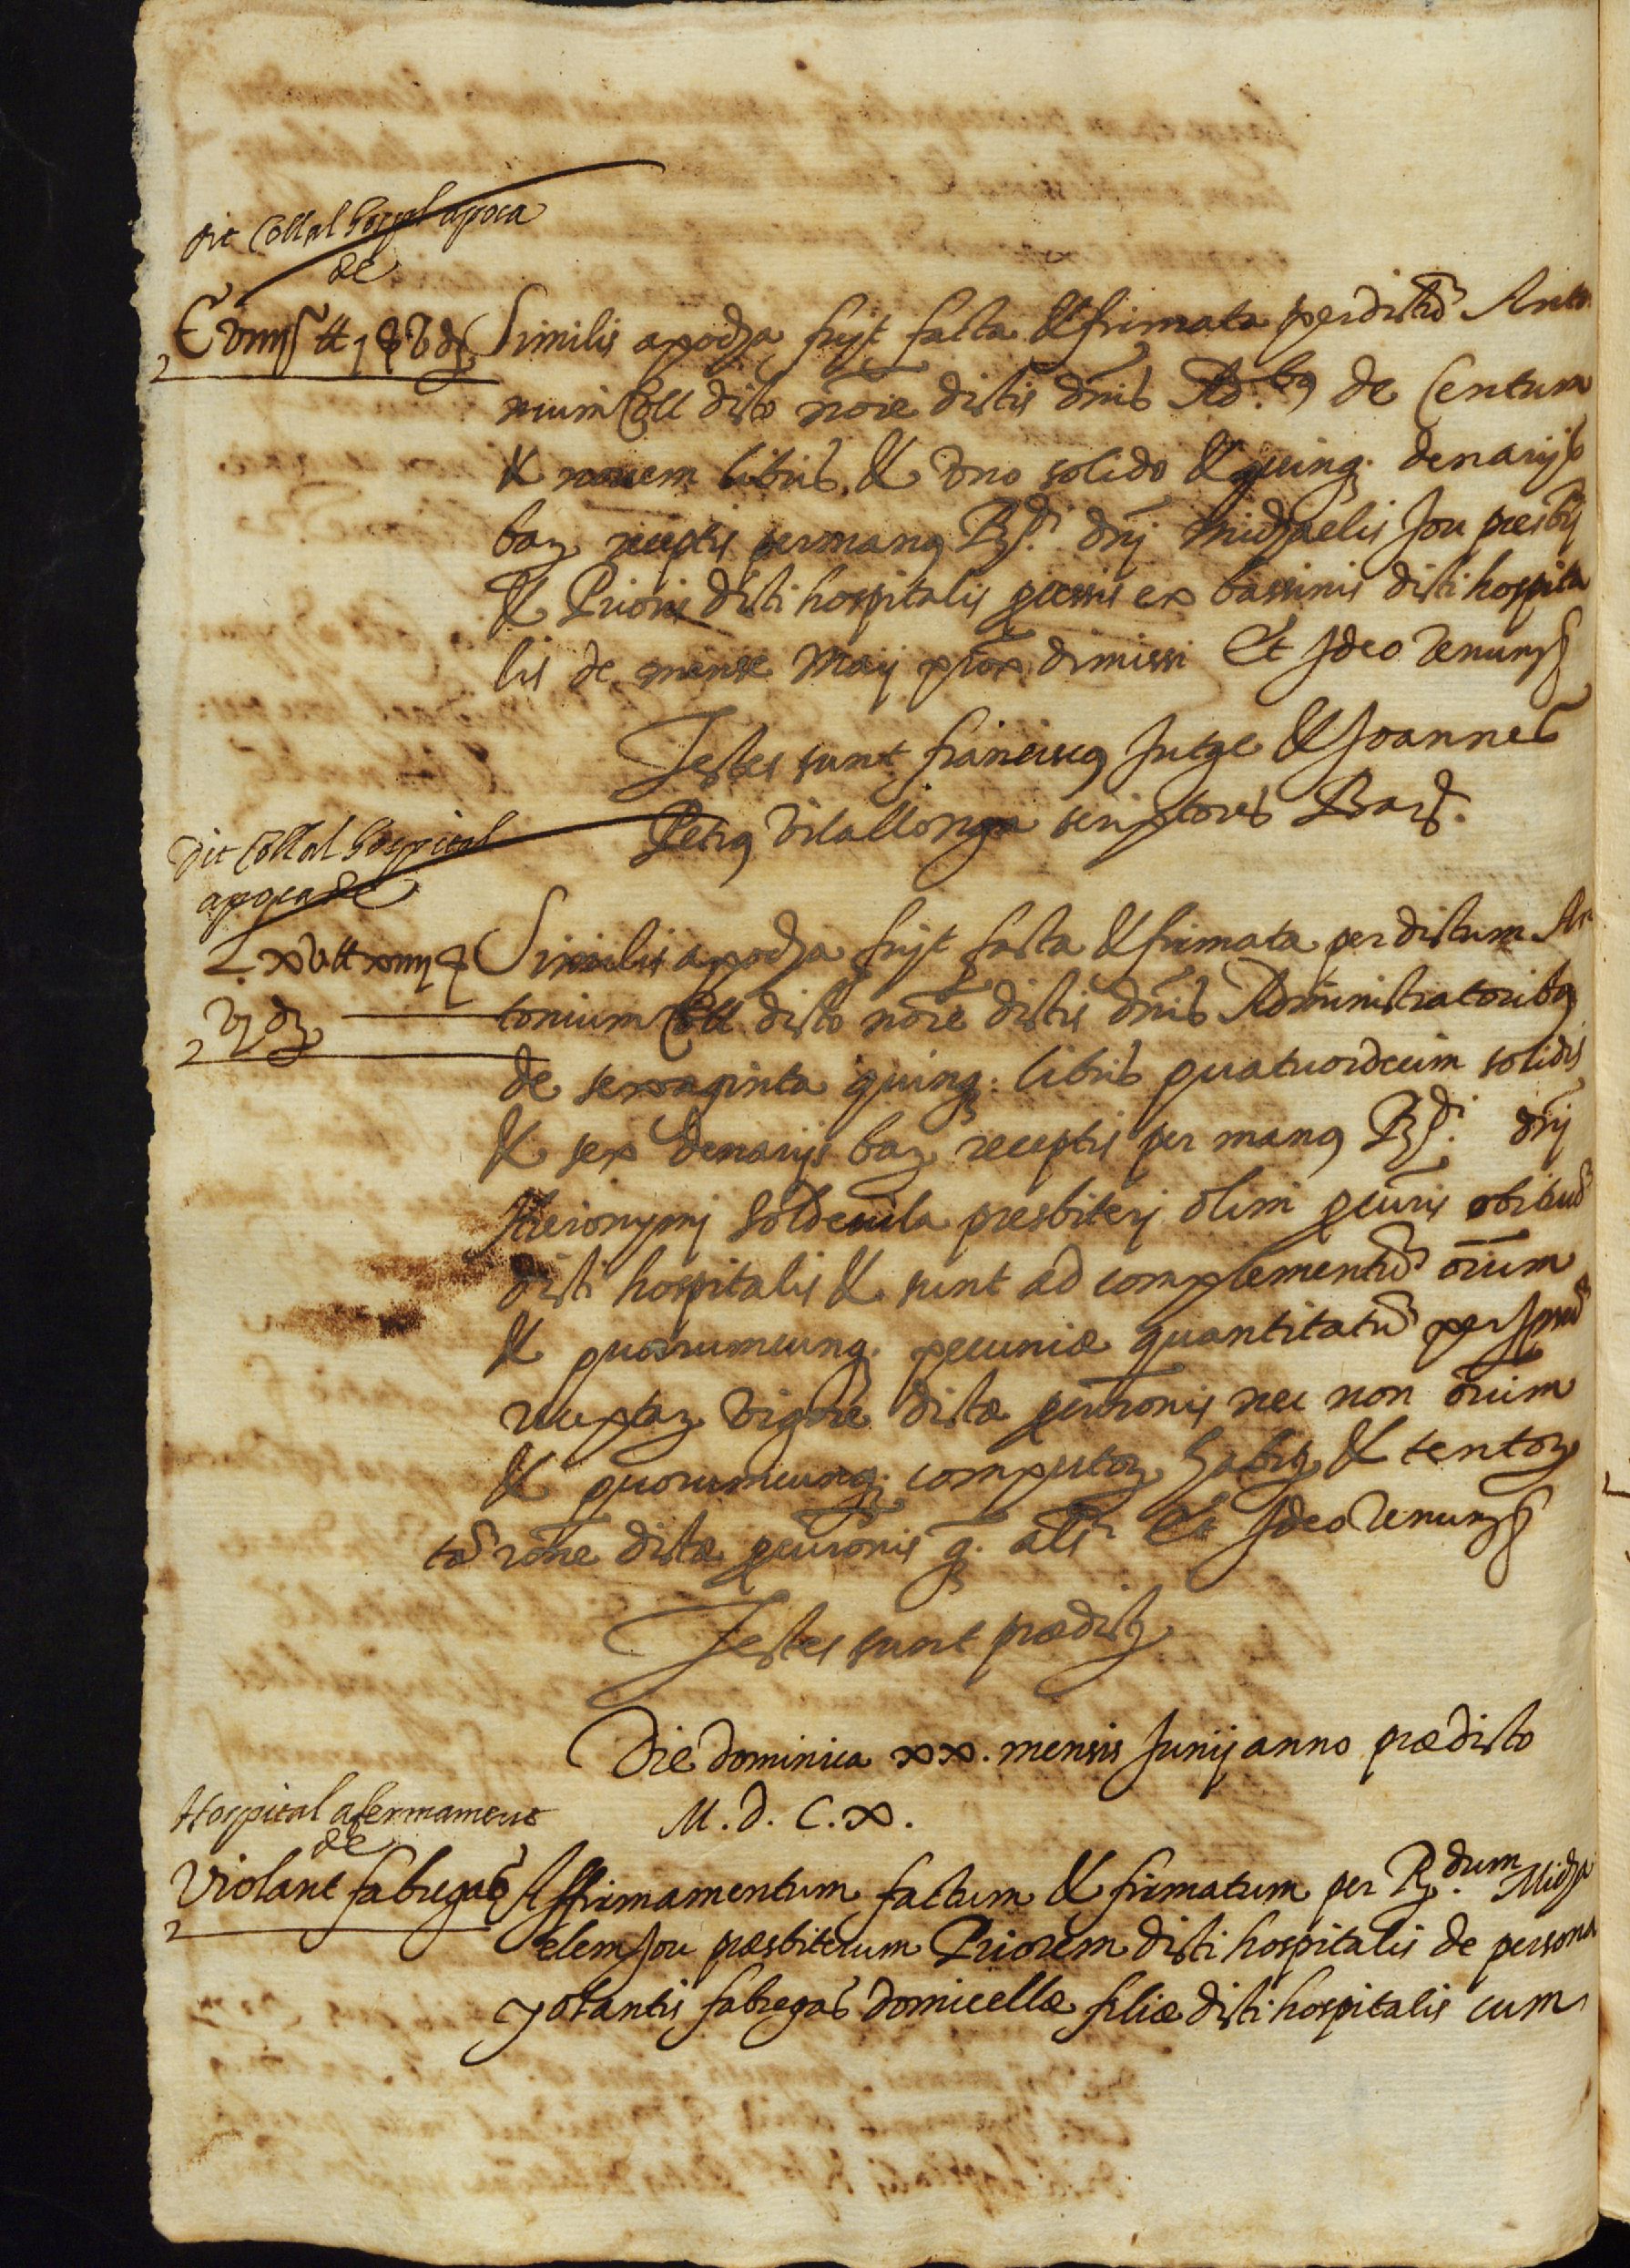 dit Coll al hospal apoca
de
C viiii ₶ 1 ß v ds
Similis apocha fuit facta & firmata per dictũ Anto
nium Coll dicto noĩe dictis dñis Ad.bꝰ de Centum
& novem libris & vno solido & quinq. denarijs
baꝫ receptis per manꝰ Rdi. dñj Michaelis Jou presbrj
& Prioris dicti hospitalis ꝓcessis ex bassinis dicti hospita
lis de mense Maij ꝓxĩe dimissi Et Ideo Renunꝯ
Testes sunt franciscꝰ Jutge & Joannes
Petrꝰ Vilallonga scriptores Barꝯ.
Dit Coll al hospital
apoca de
Lxv ₶ xiiij ß
vj ds
Similis apocha fuit facta & firmata per dictum An
tonium Coll dicto noĩe dictis dñis Administratoribꝰ
de sexaginta quinq. libris quatuordecim solidis
& sex denarijs baꝫ receptis per manꝰ Rdi. dñj
Hieronymj Soldevila presbiterj olim ꝓcũris
dicti hospitalis & sunt ad complementũ oĩum
& quarumcunq. pecuniæ quantitatũ per
receptaꝝ vigore dictæ ꝓcuroñis nec non oĩum
& quorumcunq. computoꝝ habitoꝝ & tentoꝝ
tã roñe dictæ ꝓcuroñis q̃. alr̃ Et Ideo Renunꝯ
Testes sunt prædictj
Die dominica xx. mensis Junij anno prædicto
M.D.C.x.
Hospital afermament
de
Violant fabregas
Affirmamentum factum & firmatum per Rdum. Micha
elem Jou præsbiterum Priorem dicti hospitalis de persona
yolantis fabregas domicellæ filiæ dicti hospitalis cum